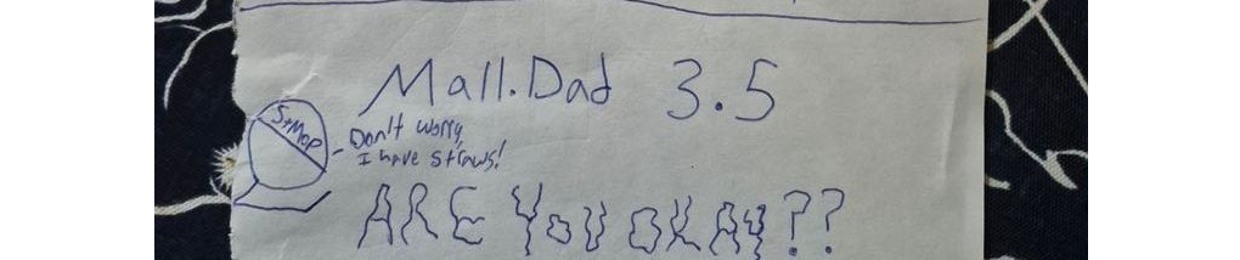 Mall.Dad 3.5
S+MOP
Don't worry,
I have straws!
ARE YOU OKAY??